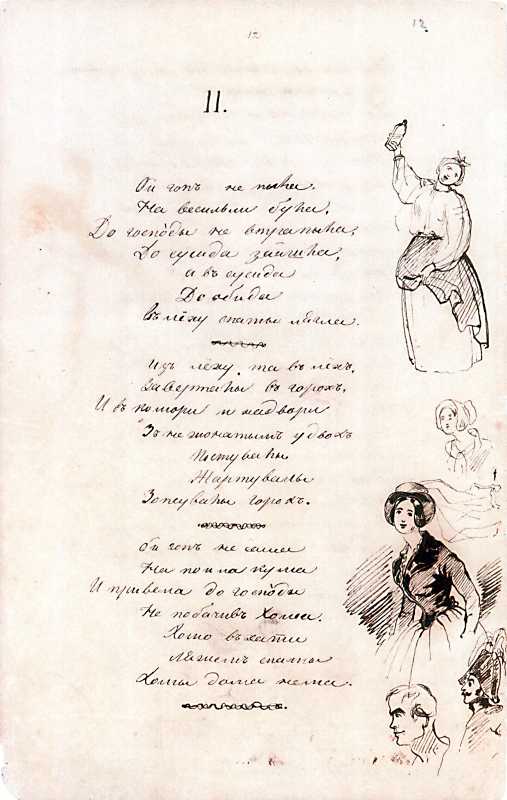 12
12
II.
Ой гопъ не пыла.
На весильли була,
До господы не втрапыла,
До сусида зайшла,
а въ сусида
До обида
въ лёху спаты лягла.
Изъ лёху, та въ лёхъ,
Заверталы въ горохъ.
И въ комори и надвори
Зъ нежонатымъ удвохъ
Пустувалы
Жартувалы
Зопсувалы горохъ.
Ой гопъ не сама
Напоила кума
И прывела до господы
Не побачивъ Хома.
Хомо въ хаты
Ляжемъ спаты
Хомы дома нема.